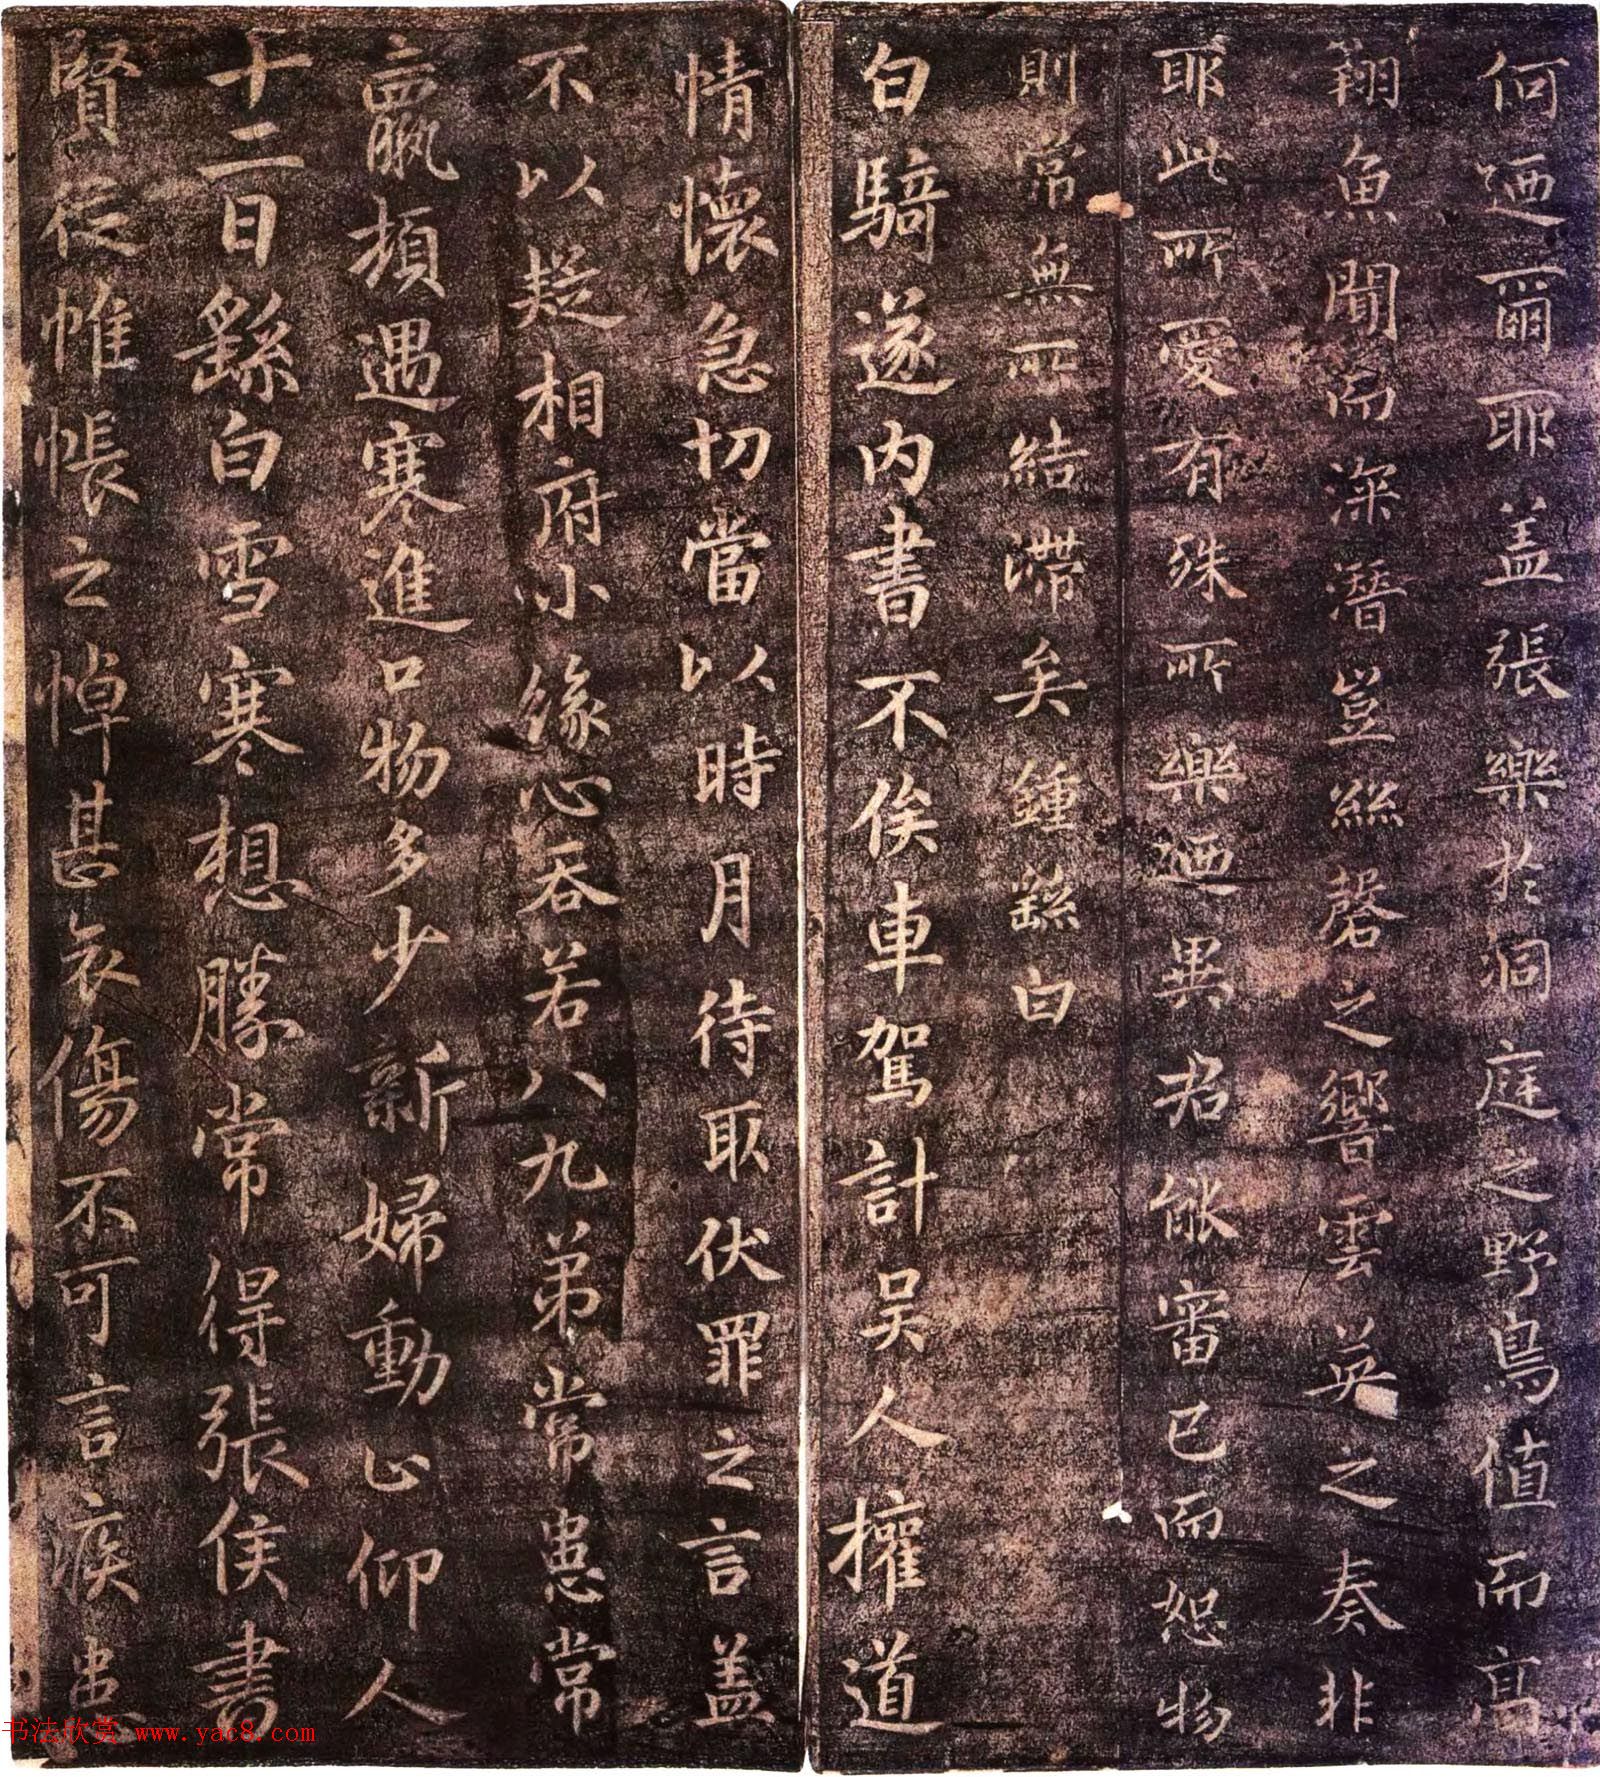 何迺爾耶盖張樂於洞庭之野鳥值而高
翔魚聞而深潛豈絲磬之響雲英之奏非
耶此所愛有殊所樂迺異君能審已而恕物
則常無所結滯矣鍾繇白
白騎遂內書不俟車駕計吴人權道
情懷急切當以時月待取伏罪之言盖
不以疑相府小緣心吞若八九弟常患常
羸頓遇寒進口物多少新婦動止仰人
十二日繇白雪寒想勝常得張侯書
賢從帷帳之悼甚哀傷不可言疾患
书法欣赏 www.yac8.com